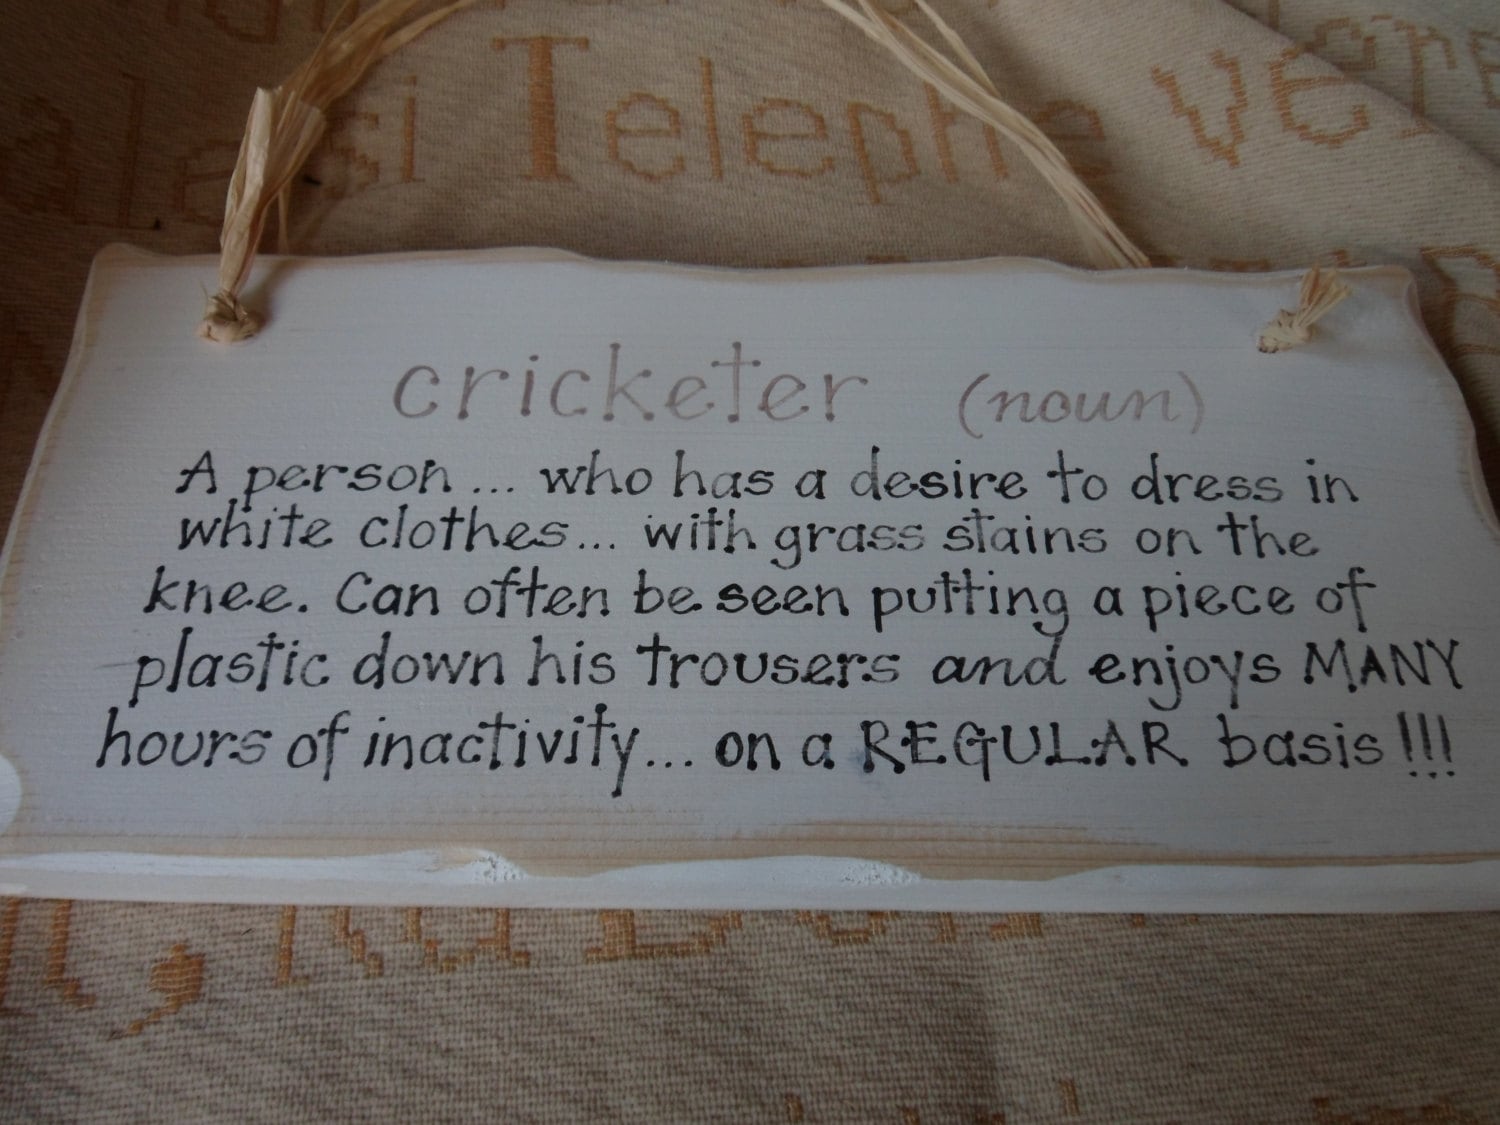 alesi Telephe vere
cricketer (noun)
A person... who has a desire to dress in
white clothes... with grass stains on the
knee. Can often be seen putting a piece of
plastic down his trousers and enjoys MANY
hours of inactivity... on a REGULAR basis!!!